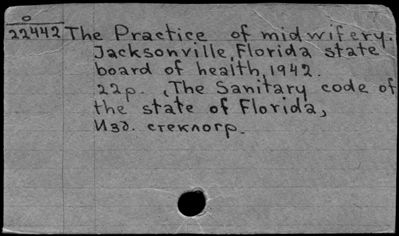 0
22442 The Practice of midwifery.
Jacksonville, Florida state
board of health, 1942.
22p. (The Sanitary code of
the state of Florida,
Изд. стеклогр.